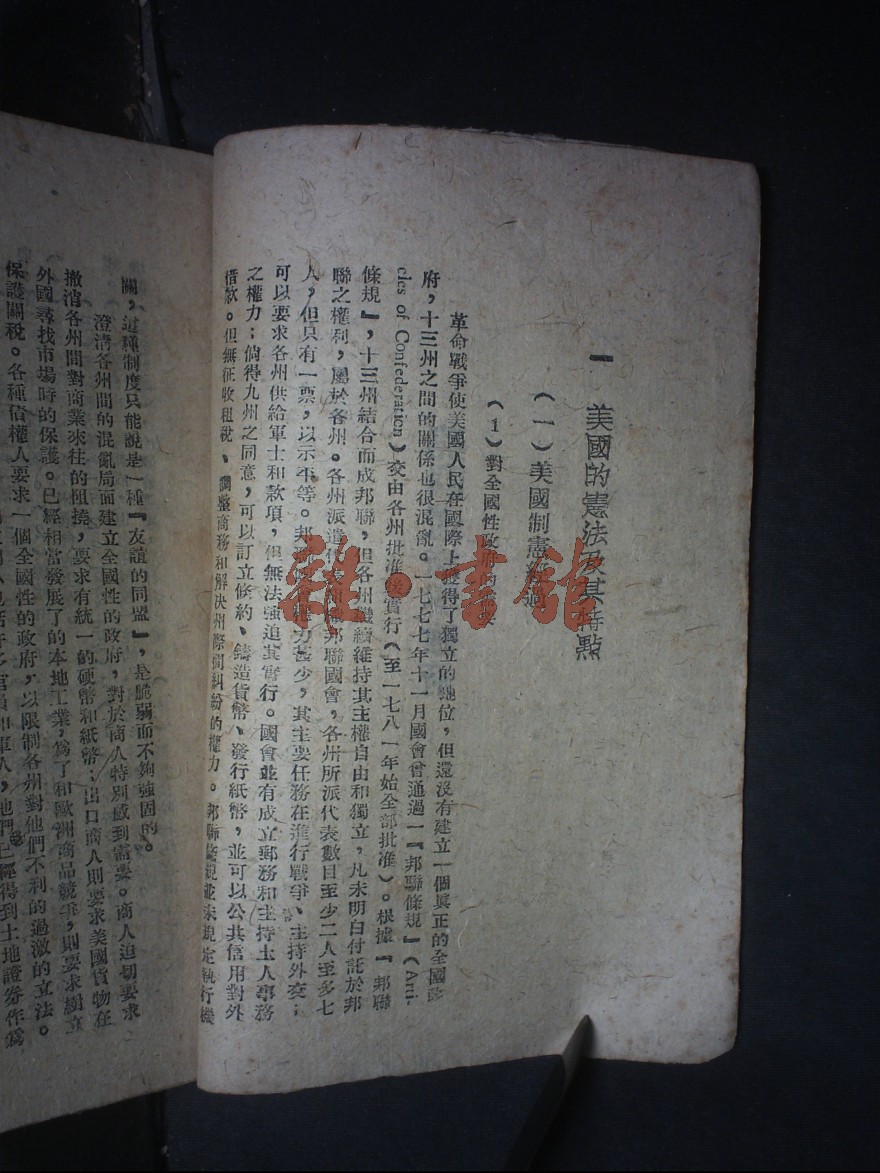 一 美國的憲法及其特點
(一)美國制憲經過
(1)對全國性政府的需要
革命戰爭使美國人民在國際上獲得了獨立的地位,但還沒有建立一個眞正的全國政
府,十三州之間的關係也很混亂。一七七七年十一月國會曾通過一『邦聯條規』(Arti-
cles of Confederation)交由各州批准後實行(至一七八一年始全部批准)。根據『邦聯
條規』,十三州結合而成邦聯,但各州繼續維持其主權自由和獨立,凡未明白付託於邦
聯之權利,屬於各州。各州派遣代表組織邦聯國會,各州所派代表數目至少二人至多七
人,但只有一票,以示平等。邦聯國會權力甚少,其主要任務在進行戰爭、主持外交;
可以要求各州供給軍士和款項,但無法强迫其實行。國會並有成立郵務和主持土人事務
之權力;倘得九州之同意,可以訂立條約、鑄造貨幣、發行紙幣,並可以公共信用對外
借款。但無征收租稅、調整商務和解決州際間糾紛的權力。邦聯條規並未規定執行機
關,這種制度只能說是一種『友誼的同盟』,是脆弱而不夠强固的。
澄清各州間的混亂局面建立全國性的政府,對於商人特別感到需要。商人迫切要求
撤消各州間對商業來往的阻撓,要求有統一的硬幣和紙幣;出口商人則要求美國貨物在
外國尋找市場時的保護。已經相當發展了的本地工業,爲了和歐洲商品競爭,則要求樹立
保護關稅。各種債權人要求一個全國性的政府,以限制各州對他們不利的過激的立法。
官員和軍人,他們已經得到土地證券作爲
雜·書館